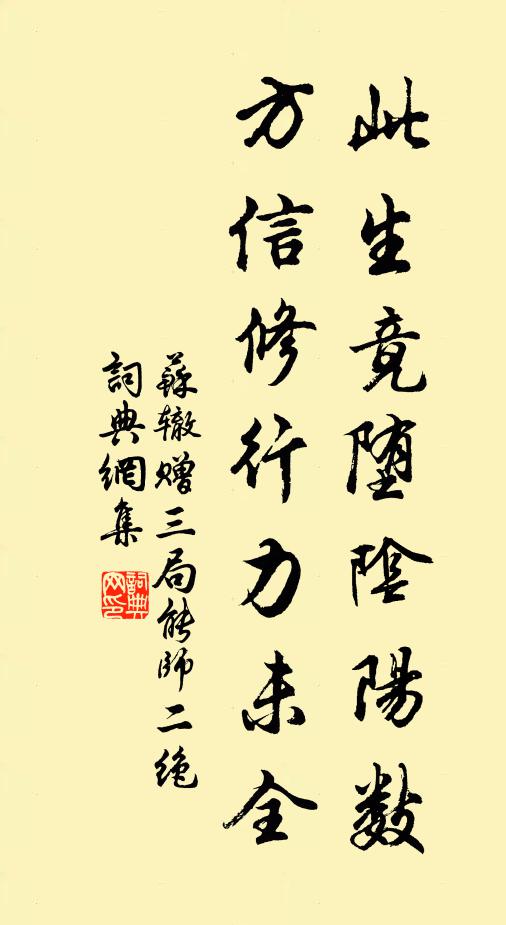 此生竟堕陰陽數
方信修行力未全
蘇辙贈三局能師二绝
詞典網集
詞典网印